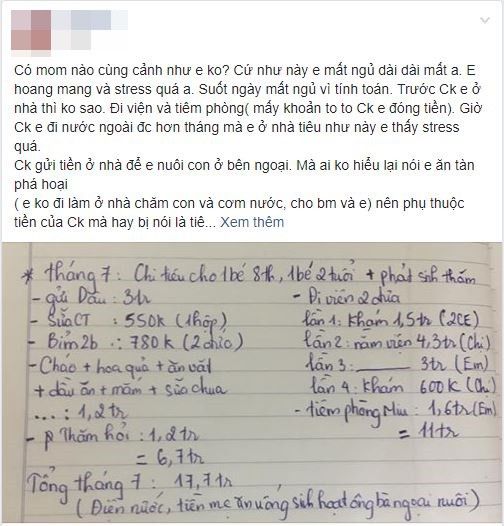 Có mom nào cùng cảnh như e ko? Cứ như này e mất ngủ dài dài mất a. E
hoang mang và stress quá a. Suốt ngày mất ngủ vì tính toán. Trước Ck e ở
nhà thì ko sao. Đi viện và tiêm phòng( mấy khoản to to Ck e đóng tiền). Giờ
Ck e đi nước ngoài đc hơn tháng mà e ở nhà tiêu như này e thấy stress
quá.
Ck gửi tiền ở nhà để e nuôi con ở bên ngoại. Mà ai ko hiểu lại nói e ăn tàn
phá hoại
( e ko đi làm ở nhà chăm con và cơm nước, cho bm và e) nên phụ thuộc
tiền của Ck mà hay bị nói là tiê... Xem thêm
* tháng 7: Chi tiêu cho 1bé 8th, 1bé 2 tuổi + phát sinh thăm
- gửi Dâu: 3tr
- Sữa CT : 550k (1hộp)
- Bỉm 2b : 780k (2 đứa)
- Cháo + hoa quả + ăn vặt
+ dầu ăn + mắm + sữa chua
....: 1,2tr
- p Thăm hỏi : 1,2tr
= 6,7tr
- Đi viện 2 đứa
lần 1: Khám 1,5tr (2CE)
lần 2: nằm viện 4,3tr (Chị)
lần 3: 3tr (Em)
lần 4: khám 600k (Chị)
- tiêm phòng Miu : 1,6tr (Em)
= 11tr
Tổng tháng 7 : 17,7tr
( Điện nước, tiền mẹ ăn uống sinh hoạt ông bà ngoại nuôi)